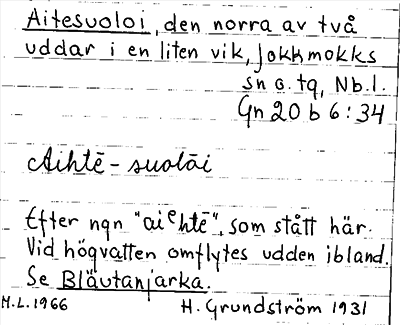 Aitesuoloi, den norra av två
uddar i en liten vik, Jokkmokks
sn o. tg, Nb.l.
Gn 20 b 6:34
Aihtē-suolāi
Efter ngn "aiehtē", som stått här.
Vid högvatten omflytes udden ibland.
Se Bläutanjarka.
M.L. 1966 H. Grundström 1931